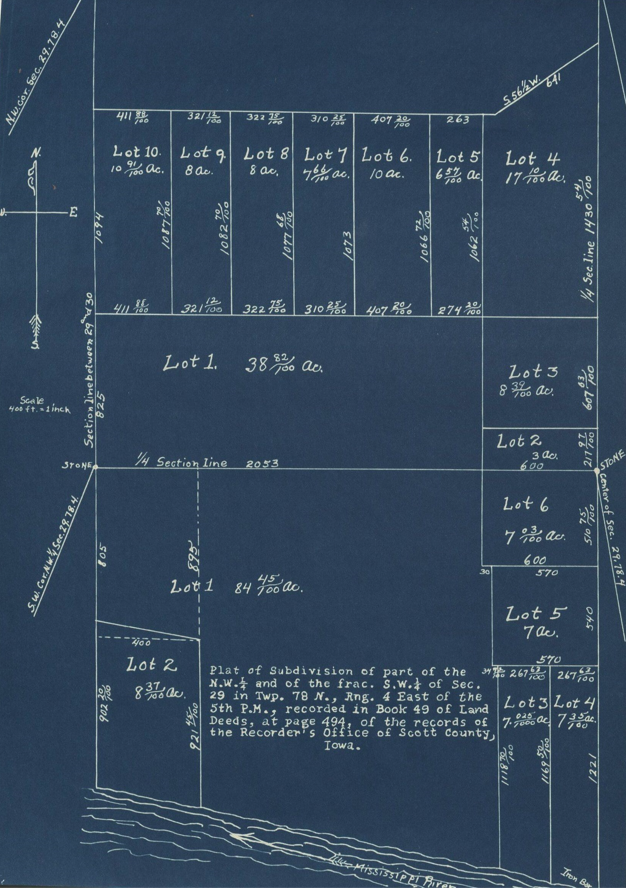 N.W. cor. Sec. 29.78.4
S 56½ W. 641
411 88/100
321 12/100
322 75/100
310 25/100
407 20/100
263
Lot 10.
10 91/100 Ac.
Lot 9
8 Ac.
Lot 8
8 Ac.
Lot 7
7 66/100 Ac.
Lot 6.
10 Ac.
Lot 5
6 57/100 Ac.
Lot 4
17 10/100 Ac.
N.
E
1094
1087 70/100
1082 70/100
1077 68/100
1073
1066 72/100
1062 54/100
¼ Sec. line 1430 54/100
411 88/100
321 12/100
322 75/100
310 25/100
407 20/100
274 20/100
Section line between 29 and 30
825
Lot 1. 38 82/100 Ac.
Lot 3
8 39/100 Ac.
607 03/100
Scale
400 ft. = 1 inch
Lot 2
3 Ac.
600
217 97/100
STONE
¼ Section line 2053
STONE
Center of Sec. 29.78.4
S.W. Cor. N.W.¼ Sec. 29.78.4.
Lot 6
7 03/100 Ac.
510 75/100
600
30
570
805
895
Lot 1 84 45/100 Ac.
Lot 5
7 Ac.
540
570
400
Lot 2
8 37/100 Ac.
902 20/100
Plat of Subdivision of part of the
N.W.¼ and of the frac. S.W.¼ of Sec.
29 in Twp. 78 N., Rng. 4 East of the
5th P.M., recorded in Book 49 of Land
Deeds, at page 494, of the records of
the Recorder's Office of Scott County,
Iowa.
267 63/100
267 63/100
Lot 3
7 025/1000 Ac
Lot 4
7 35/100 Ac.
1118 70/100
1169 50/100
1221
Mississippi River
Iron Bar